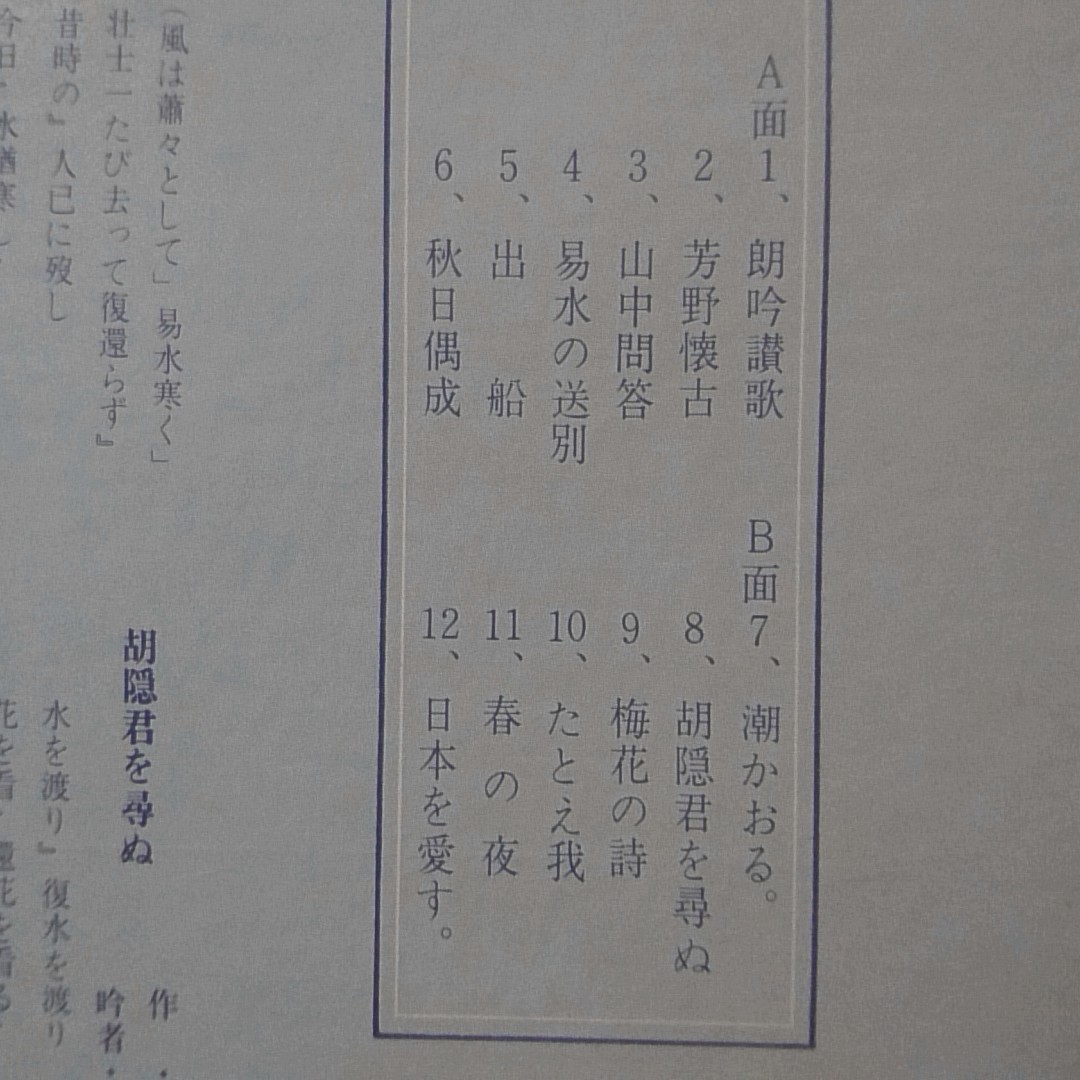 A面
1、朗吟讃歌
2、芳野懐古
3、山中問答
4、易水の送別
5、出船
6、秋日偶成
B面
7、潮かおる。
8、胡隠君を尋ぬ
9、梅花の詩
10、たとえ我
11、春の夜
12、日本を愛す。
(風は蕭々として」易水寒く」
壮士一たび去って復還らず』
昔時の』人已に歿し
今日
胡隠君を尋ぬ
作・
吟者・
水を渡り』復水を渡り
花を看
還花を看る